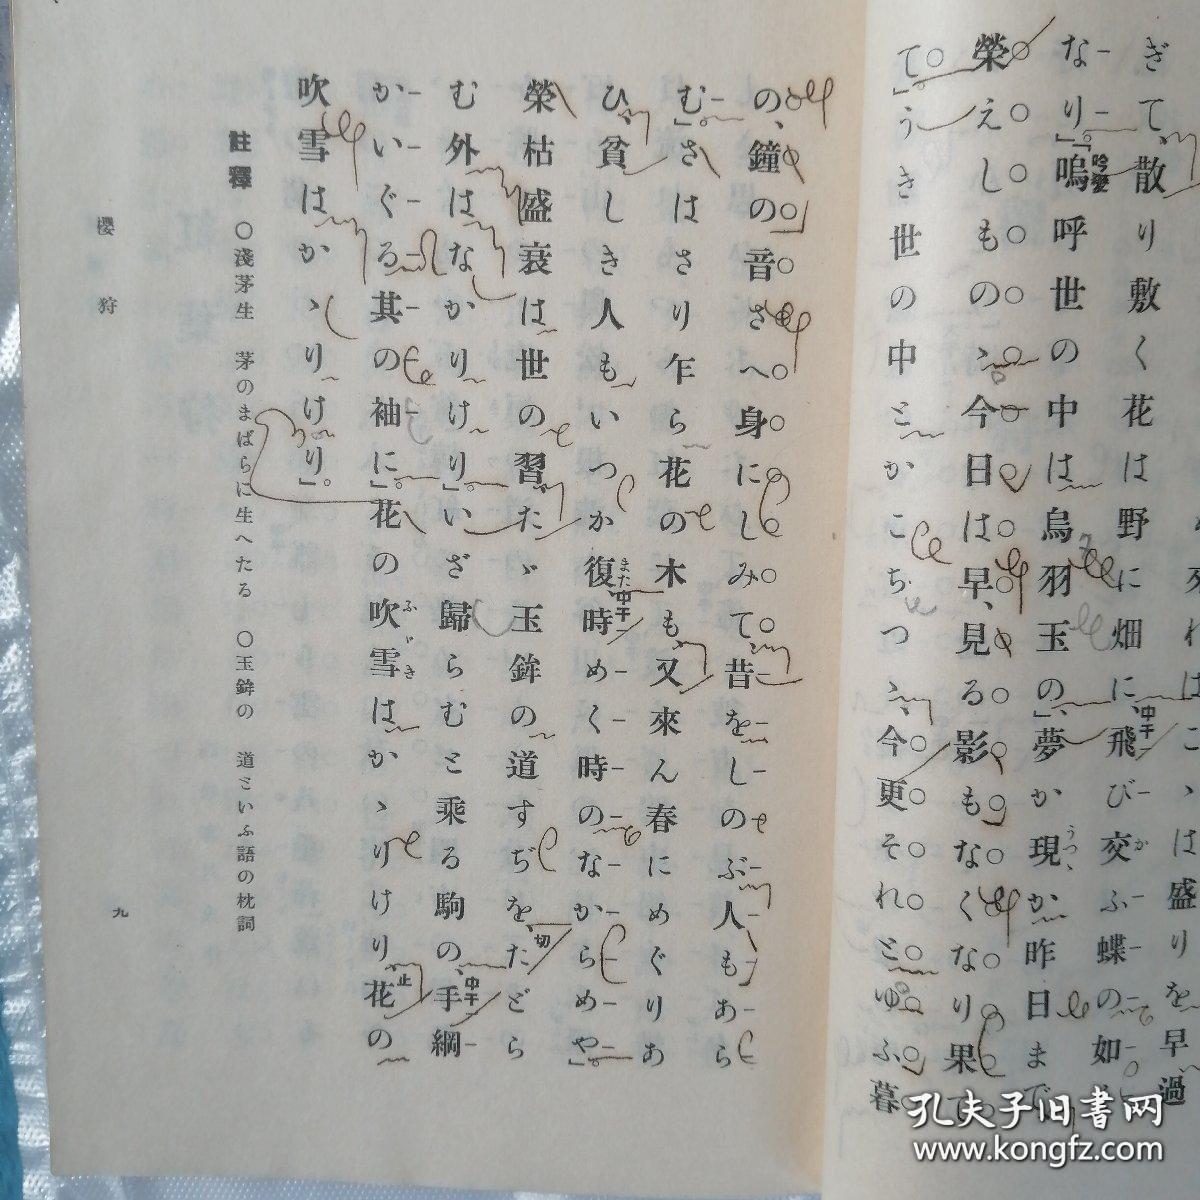 ぎて、散り敷く花は野に畑に、飛び交ふ蝶の如
なり」。「嗚呼世の中は烏羽玉の、」夢か現か昨日まで
榮えしものゝ今日は早、見る影もなくなり果て
て」。うき世の中とかこちつゝ、今更それとゆふ暮
の、鐘の音さへ身にしみて、昔をしのぶ人もあら
む」。さはさり乍ら花の木も、又來ん春にめぐりあ
ひ、貧しき人もいつか復時めく時のなからめや」。
榮枯盛衰は世の習、たゞ玉鉾の道すぢを、たどら
む外はなかりけり」。いざ歸らむと乘る駒の、手綱
かいぐる其の袖に」。花の吹雪はかゝりけり、花の
吹雪はかゝりけり」。
註釋 〇淺茅生 茅のまばらに生へたる 〇玉鉾の 道といふ語の枕詞
櫻狩
九
孔夫子旧书网
www.kongfz.com